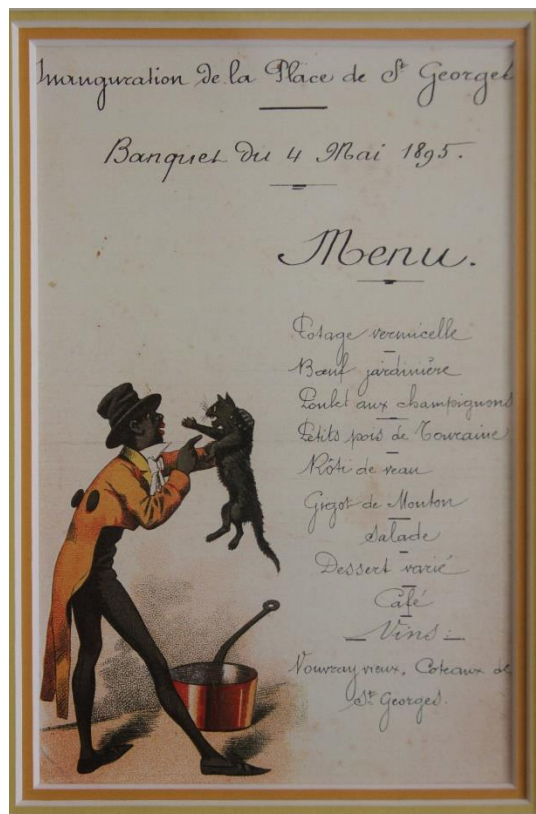 Inauguration de la Place de St Georges
Banquet du 4 Mai 1895.
Menu.
Potage vermicelle
Bœuf jardinière
Poulet aux champignons
Petits pois de Touraine
Rôti de veau
Gigot de Mouton
Salade
Dessert varié
Café
Vins :
Vouvray vieux, Coteaux de
St Georges.